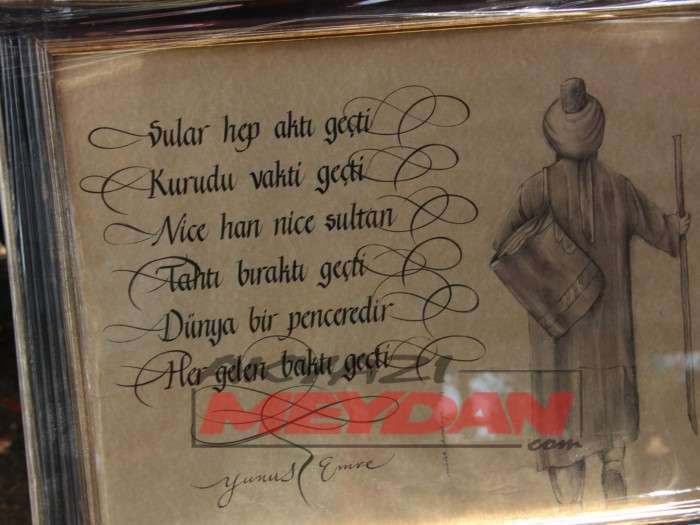 Sular hep aktı geçti
Kurudu vakti geçti
Nice han nice sultan
Tahtı bıraktı geçti
Dünya bir penceredir
Her gelen baktı geçti
AKYAZI
MEYDAN
.com
Yunus Emre